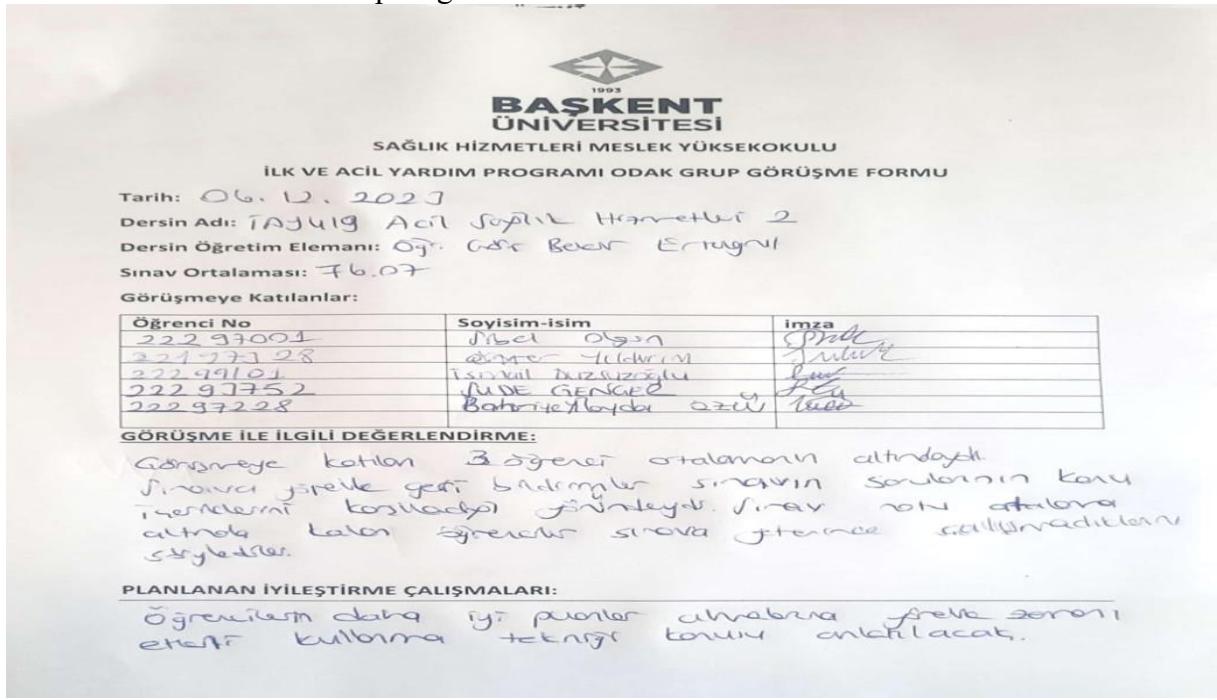 1993
BAŞKENT
ÜNİVERSİTESİ
SAĞLIK HİZMETLERİ MESLEK YÜKSEKOKULU
İLK VE ACİL YARDIM PROGRAMI ODAK GRUP GÖRÜŞME FORMU
Tarih: 06.12.2023
Dersin Adı: Acil Sağlık Hizmetleri 2
Dersin Öğretim Elemanı: Öğr. Gör. Ertuğrul
Sınav Ortalaması: 76.07
Görüşmeye Katılanlar:
Öğrenci No Soyisim-isim imza
22297001 Sibel Olgun
Yıldırım
22299101 İsmail
22293752 SUDE GENÇER
22297228 Bahriye
GÖRÜŞME İLE İLGİLİ DEĞERLENDİRME:
Görüşmeye katılan 3 öğrenci ortalamanın altındaydı.
Sınava yönelik geri bildirimler sınavın sorularının konu
içeriklerini karşıladığı yönündeydi. Sınav notu ortalama
altında kalan öğrenciler sınava yeterince çalışmadıklarını
söylediler.
PLANLANAN İYİLEŞTİRME ÇALIŞMALARI:
Öğrencilerin daha iyi puanlar almabına yönelik zamanı
etkili kullanma tekniği konusu anlatılacak.